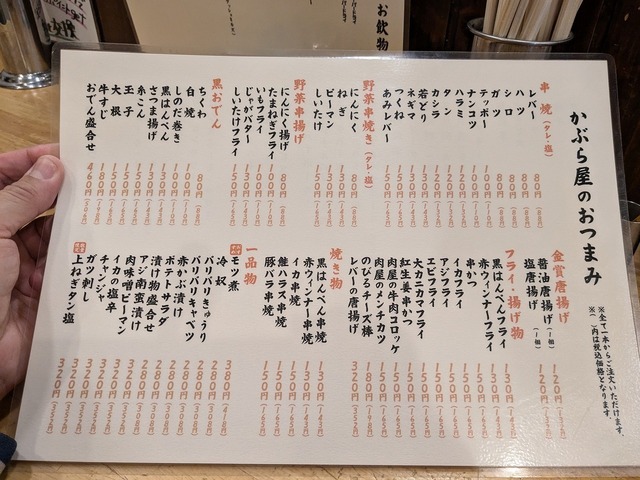 お飲物
かぶら屋のおつまみ
※全て一本からご注文いただけます。
※( )内は税込価格となります。
串焼(タレ・塩)
レバー 80円(88円)
ハツ 80円(88円)
シロ 80円(88円)
ガツ 80円(88円)
テッポー 100円(110円)
ナンコツ
ハラミ
タン
カシラ
若どり
ネギマ
つくね
あみレバー 150円(165円)
野菜串焼き(タレ・塩)
にんにく 80円(88円)
ねぎ
ピーマン
しいたけ 150円(165円)
野菜串揚げ
にんにく揚げ 80円(88円)
たまねぎフライ 100円(110円)
いもフライ 100円(110円)
じゃがバター 130円(143円)
しいたけフライ 150円(165円)
黒おでん
ちくわ 80円(88円)
白焼 100円(110円)
しのだ巻き 100円(110円)
黒はんぺん 130円(143円)
さつま揚げ
糸こん
玉子
大根
牛すじ
おでん盛合せ 460円(506円)
金賞唐揚げ
醤油唐揚げ(一個) 120円
塩唐揚げ(一個) 120円
フライ・揚げ物
黒はんぺんフライ 130円(143円)
赤ウィンナーフライ
串かつ 150円(165円)
イカフライ 150円(165円)
アジフライ 150円(165円)
エビフライ 150円(165円)
大カニカマフライ 150円(165円)
紅生姜串かつ 150円(165円)
肉屋の牛肉コロッケ 150円(165円)
肉屋のメンチカツ
のびるチーズ棒 180円(198円)
レバーの唐揚げ 320円(352円)
焼き物
黒はんぺん串焼 130円(143円)
赤ウィンナー串焼 130円(143円)
イカ串焼 150円(165円)
鮭ハラス串焼 150円(165円)
豚バラ串焼 150円(165円)
一品物
モツ煮 380円(418円)
冷奴
パリパリきゅうり 280円(308円)
バリバリキャベツ 280円(308円)
赤かぶ漬け 280円(308円)
ポテトサラダ 280円(308円)
漬け物盛合せ 280円(308円)
アジ南蛮漬け
肉味噌ピーマン 320円(352円)
イカの塩辛 320円(352円)
チャンジャ 320円(352円)
ガツ刺し 320円(352円)
上ねぎタン塩 320円(352円)